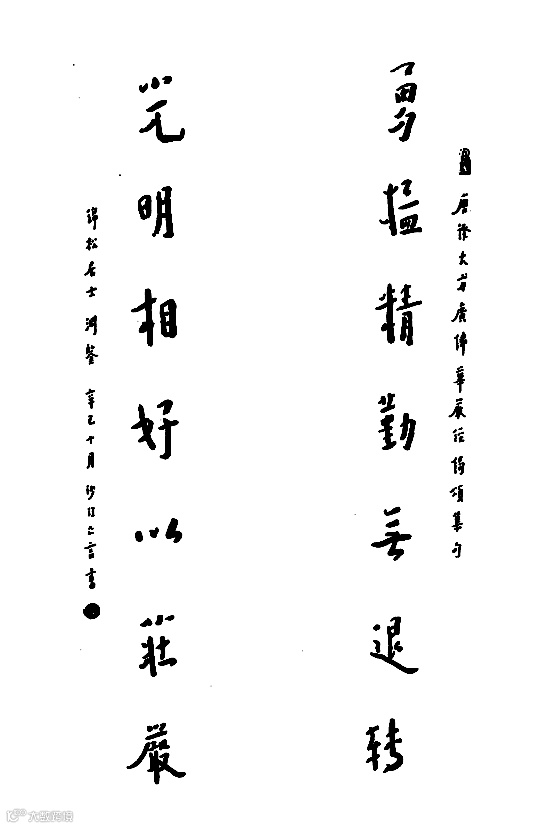 唐譯大方廣佛華嚴經偈頌集句
勇猛精勤無退轉
光明相好以莊嚴
松居士 鑒 辛巳十月 沙門亡言書